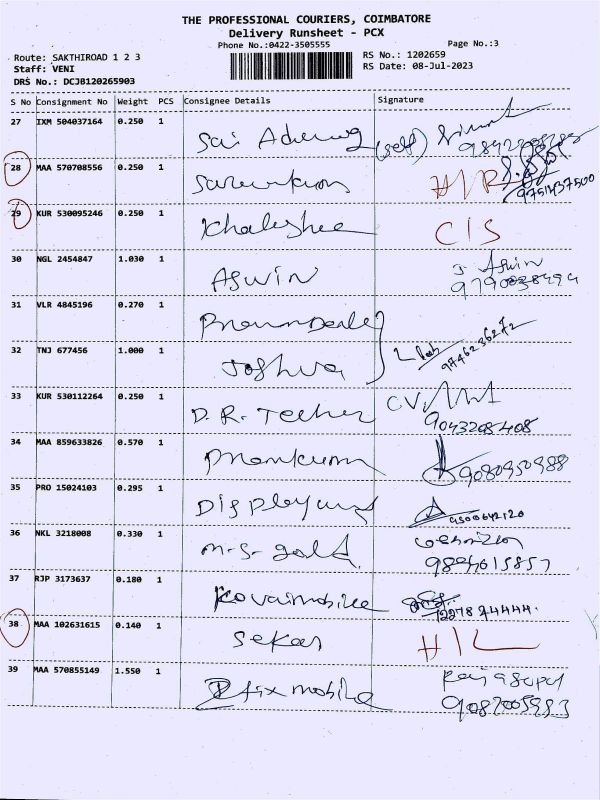 THE PROFESSIONAL COURIERS, COIMBATORE
Delivery Runsheet - PCX
Phone No.:0422-3505555
Page No.:3
Route: SAKTHIROAD 1 2 3
RS No.: 1202659
Staff: VENI
RS Date: 08-Jul-2023
DRS No.: DCJB120265903
S No Consignment No Weight PCS Consignee Details Signature
27 IXM 504037164 0.250 1 Sai (self)
28 MAA 570708556 0.250 1 9751437500
29 KUR 530095246 0.250 1 C/S
30 NGL 2454847 1.030 1 Aswin J Aswin
31 VLR 4845196 0.270 1
32 TNJ 677456 1.000 1 Joshua 9746236272
33 KUR 530112264 0.250 1 D.R. CV
9043208408
34 MAA 859633826 0.570 1 9080950988
35 PRO 15024103 0.295 1 9500642120
36 NKL 3218008 0.330 1 m.s. gold
9894615857
37 RJP 3173637 0.180 1 Kovaimobile
38 MAA 102631615 0.140 1 Sekar H/L
39 MAA 570855149 1.550 1 fix mobile Rajagopal
9087005983